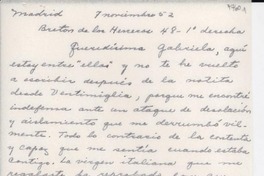 Madrid 7 noviembre 52
Bretón de los Herreros 48-1º derecha
Queredísima Gabriela, aquí
estoy entre "ellas" y no te he vuelto
a escribir después de la notita
desde Ventimiglia, porque me encontré
indefensa ante un ataque de desolación
y aislamiento que me derrumbó vil-
mente. Todo lo contrario de la contenta
y capaz que me sentía cuando estaba
contigo. La virgen italiana que me
regalaste ha